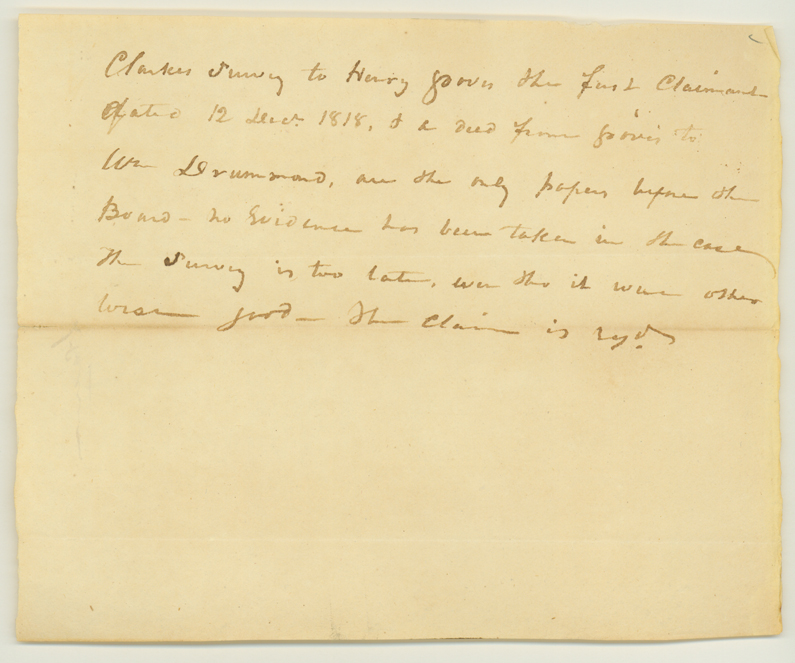 Clarkes Survey to Henry Groves the first Claimant
dated 12 Decr. 1818, & a deed from Groves to
Wm Drummond, are the only papers before the
Board - no Evidence has been taken in the case
the Survey is too late, even tho it were other
wise good - the Claim is rejd.